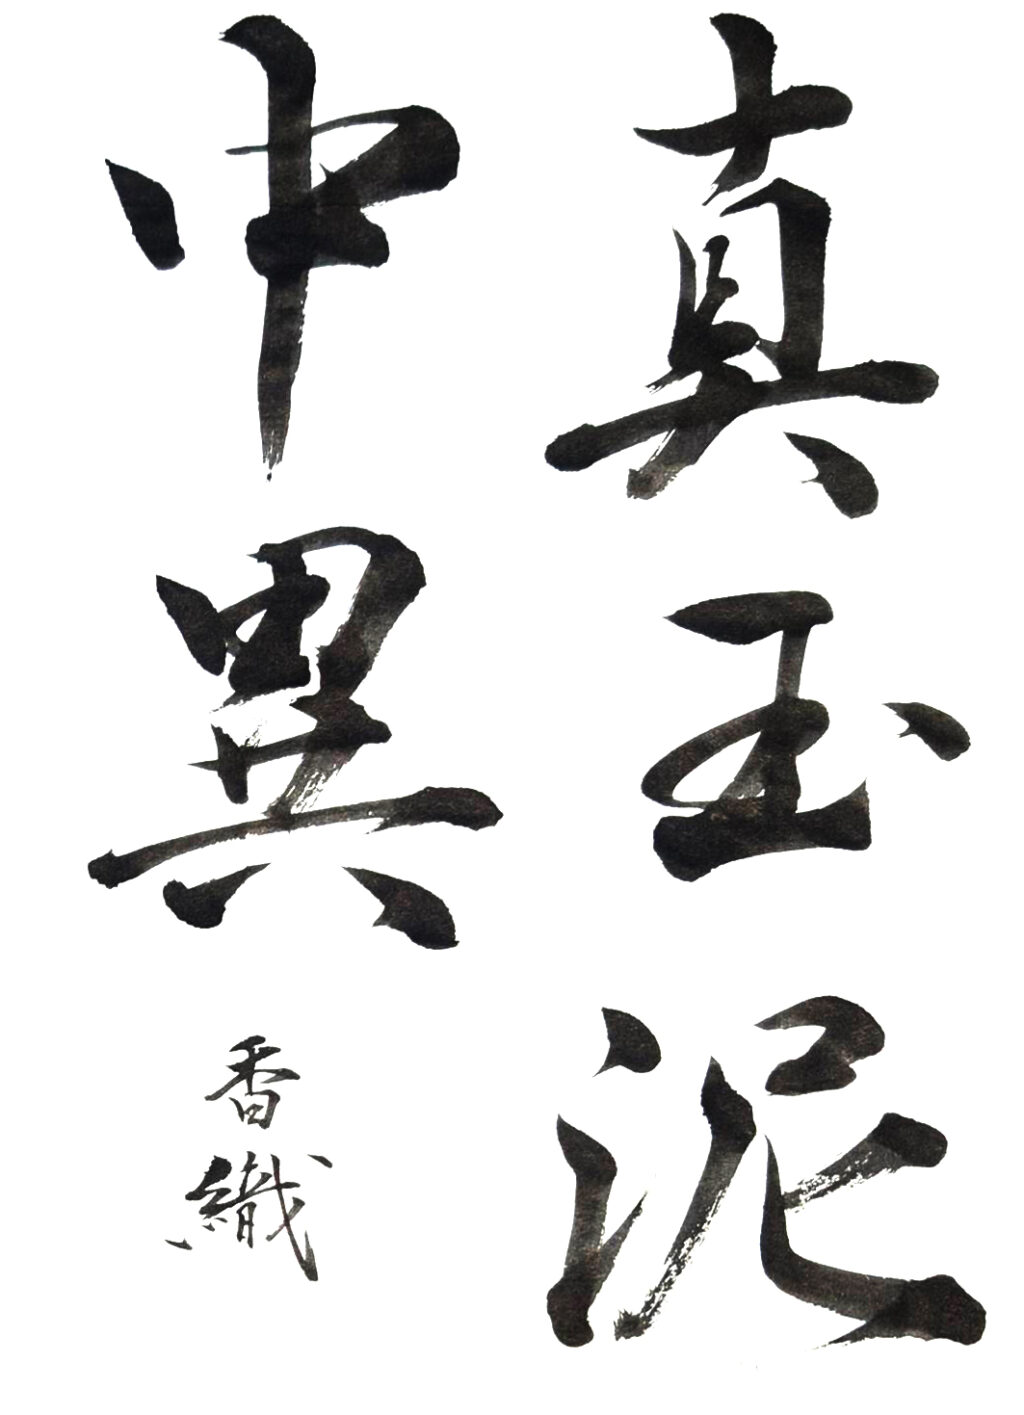 真玉泥
中異
香織